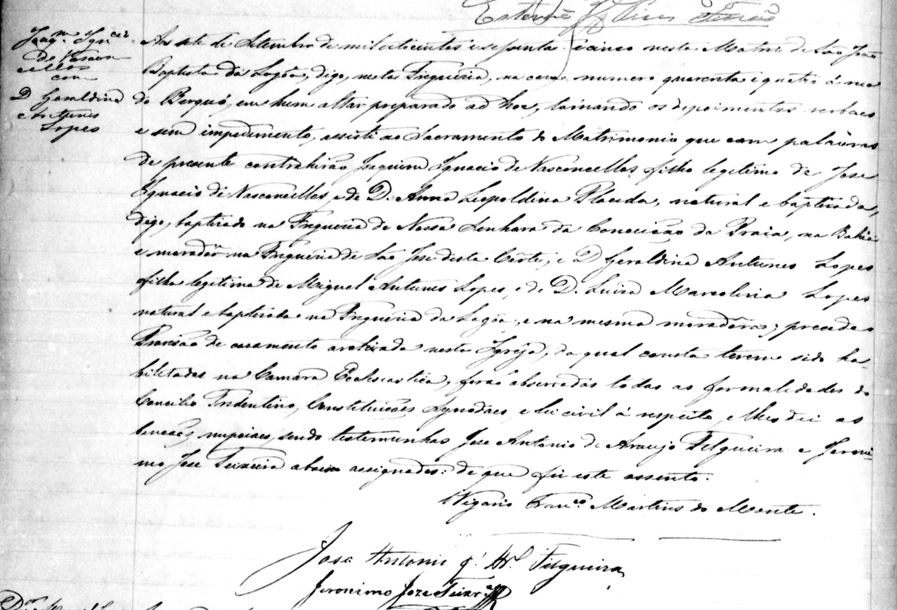 Joaqm Ignco
de Vascon
cellos
com
D. Geraldina
Antunes
Lopes
Aos sete de Setembro de mil oitocentos e sessenta e cinco nesta Matriz de São João
Baptista da Lagôa, digo, nesta Freguezia, na casa numero quarenta e quatro á rua
do Berquó, em hum altar preparado ad hoc, tomando os depoimentos verbaes
e sem impedimento, assisti ao Sacramento do Matrimonio que com palavras
de presente contrahirão Joaquim Ignacio de Vasconcellos, filho legitimo de José
Ignacio de Vasconcellos, e de D. Anna Leopoldina Placida, natural e baptizada,
digo, baptizado na Freguezia de Nossa Senhora da Conceição da Praia, na Bahia
e morador na Freguezia de São José desta Corte; e D Geraldina Antunes Lopes
filha legitima de Miguel Antunes Lopes, e de D. Luiza Marcolina Lopes
natural e baptizada na Freguezia da Lagôa, e na mesma moradora; precedeo
Provisão de casamento archivada nesta Igreja, da qual consta terem sido ha-
bilitados na Camara Ecclesiastica, forão observadas todas as formalidades do
Concilio Tridentino, Constituições Synodaes, e lei civil á respeito, e lhes dei as
bençãos nupciaes, sendo testemunhas José Antonio de Araujo Filgueira e Jeroni-
mo José Teixeira abaixo assignados: de que fiz este assento.
Vigario Franco Martins do Monte.
José Antonio d' Aº Filgueira
Jeronimo Joze Teixrª Jr